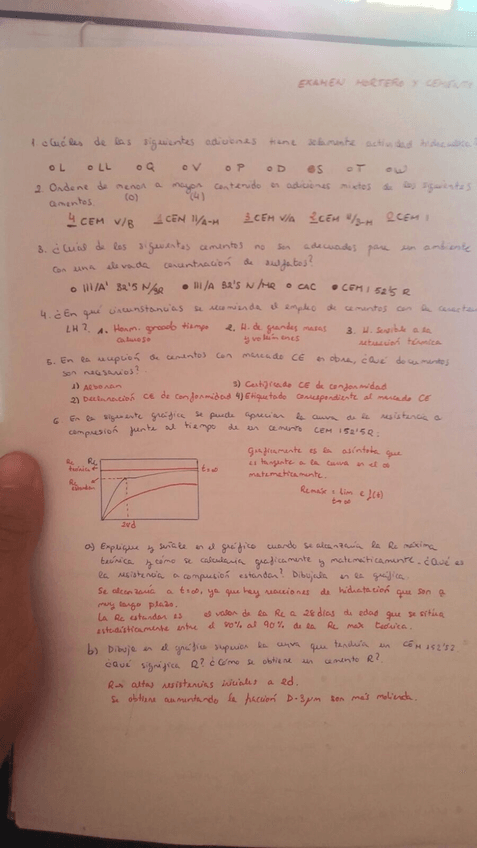 EXAMEN MORTERO Y CEMENTO
1. ¿Cuáles de las siguientes adiciones tiene solamente actividad hidráulica?
o L o LL o Q o V o P o D o S o T o W
2. Ordene de menor a mayor contenido en adiciones mixtos de los siguientes
(0) (4)
cementos.
4 CEM V/B 1 CEM II/A-M 3 CEM V/A 2 CEM II/B-M 0 CEM I
3. ¿Cuáles de los siguientes cementos no son adecuados para un ambiente
con una elevada concentración de sulfatos?
o III/A 32'5 N/SR • III/A 32'5 N/MR o CAC • CEM I 52'5 R
4. ¿En qué circunstancias se recomienda el empleo de cementos con la
LH?. 1. Horm. grande tiempo 2. H. de grandes masas 3. H. sensible a la
caluroso y volúmenes retracción térmica
5. En la recepción de cementos con marcado CE en obra, ¿Qué documentos
son necesarios?
1) Albarán 3) Certificado CE de conformidad
2) Declaración CE de conformidad 4) Etiquetado correspondiente al marcado CE
6. En la siguiente gráfica se puede apreciar la curva de la resistencia a
compresión frente al tiempo de un cemento CEM I 52'5R:
Gráficamente es la asíntota que
es tangente a la curva en el ∞
matemáticamente.
Rcmáx = lim f(t)
t→∞
Rc
teórica
Rc
t=∞
Rc
estandar
28d
a) Explique y señale en el gráfico cuando se alcanzaría la Rc máxima
teórica y cómo se calcularía gráficamente y matemáticamente. ¿Qué es
la resistencia a compresión estandar? Dibújala en la gráfica.
Se alcanzaría a t=∞, ya que hay reacciones de hidratación que son a
muy largo plazo.
La Rc estandar es el valor de la Rc a 28 días de edad que se estima
estadísticamente entre el 80% al 90% de la Rc max teórica.
b) Dibuja en el gráfico superior la curva que tendría un CEM I 52'5
¿Qué significa R? ¿Cómo se obtiene un cemento R?
R → altas resistencias iniciales a 2d.
Se obtiene aumentando la fracción 0-3μm son más molienda.